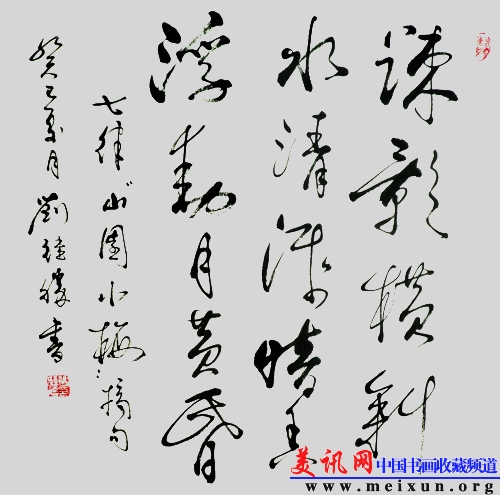 疎影横斜
水清浅暗香
浮動月黄昏
七律山園小梅摘句
癸巳夏月 劉徳勝書
美讯网 中国书画收藏频道
www.meixun.org